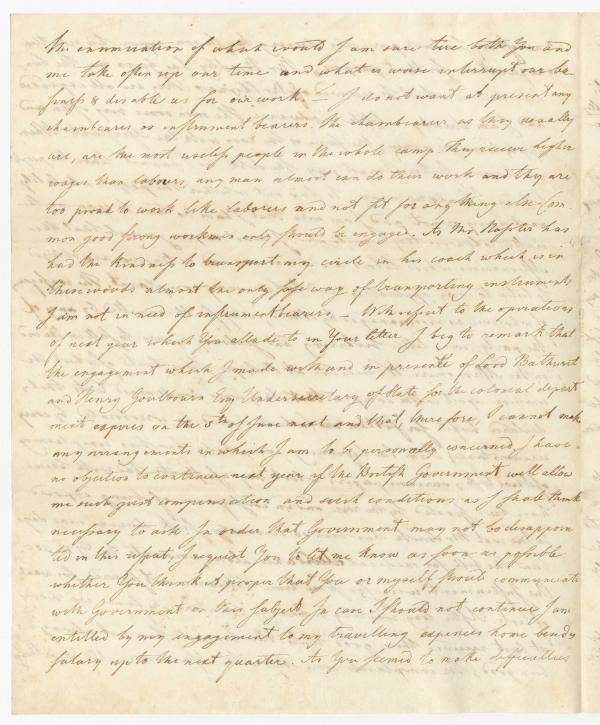 The enumeration of which would I am sure tire both You and
me take often up our time and what is worse interrupt our bu-
siness & disable us for our work. — I do not want at present any
chainbearers or instrument bearers. The chainbearers as they usually
are, are the most useless people in the whole camp. They receive higher
wages than labourers, any man almost can do their work and they are
too proud to work like laborers and not fit for any thing else. Com
mon good strong workmen only should be engaged. As Mr Napier has
had the kindness to transport my circle in his coach which is in
these woods almost the only safe way of transporting instruments
I am not in need of instrumentbearers — With respect to the operations
of next year which You allude to in Your letter I beg to remark that
the engagement which I made with and in presence of Lord Bathurst
and Henry Goulbourn Esq Undersecretary of State for the colonial depart
ment expires on the 5th of June next and that, therefore, I cannot make
any arrangements in which I am to be personally concerned, I have
no objection to continue next year if the British Government will allow
me such just compensation and such conditions as I shall think
necessary to ask. In order that Government may not be disappoin
ted in this respect, I request You to let me know as soon as possible
whether You think it proper that You or myself should communicate
with Government on this subject. In case I should not continue I am
entitled by my engagement to my travelling expences home besides
salary up to the next quarter. As You seemed to make difficulties